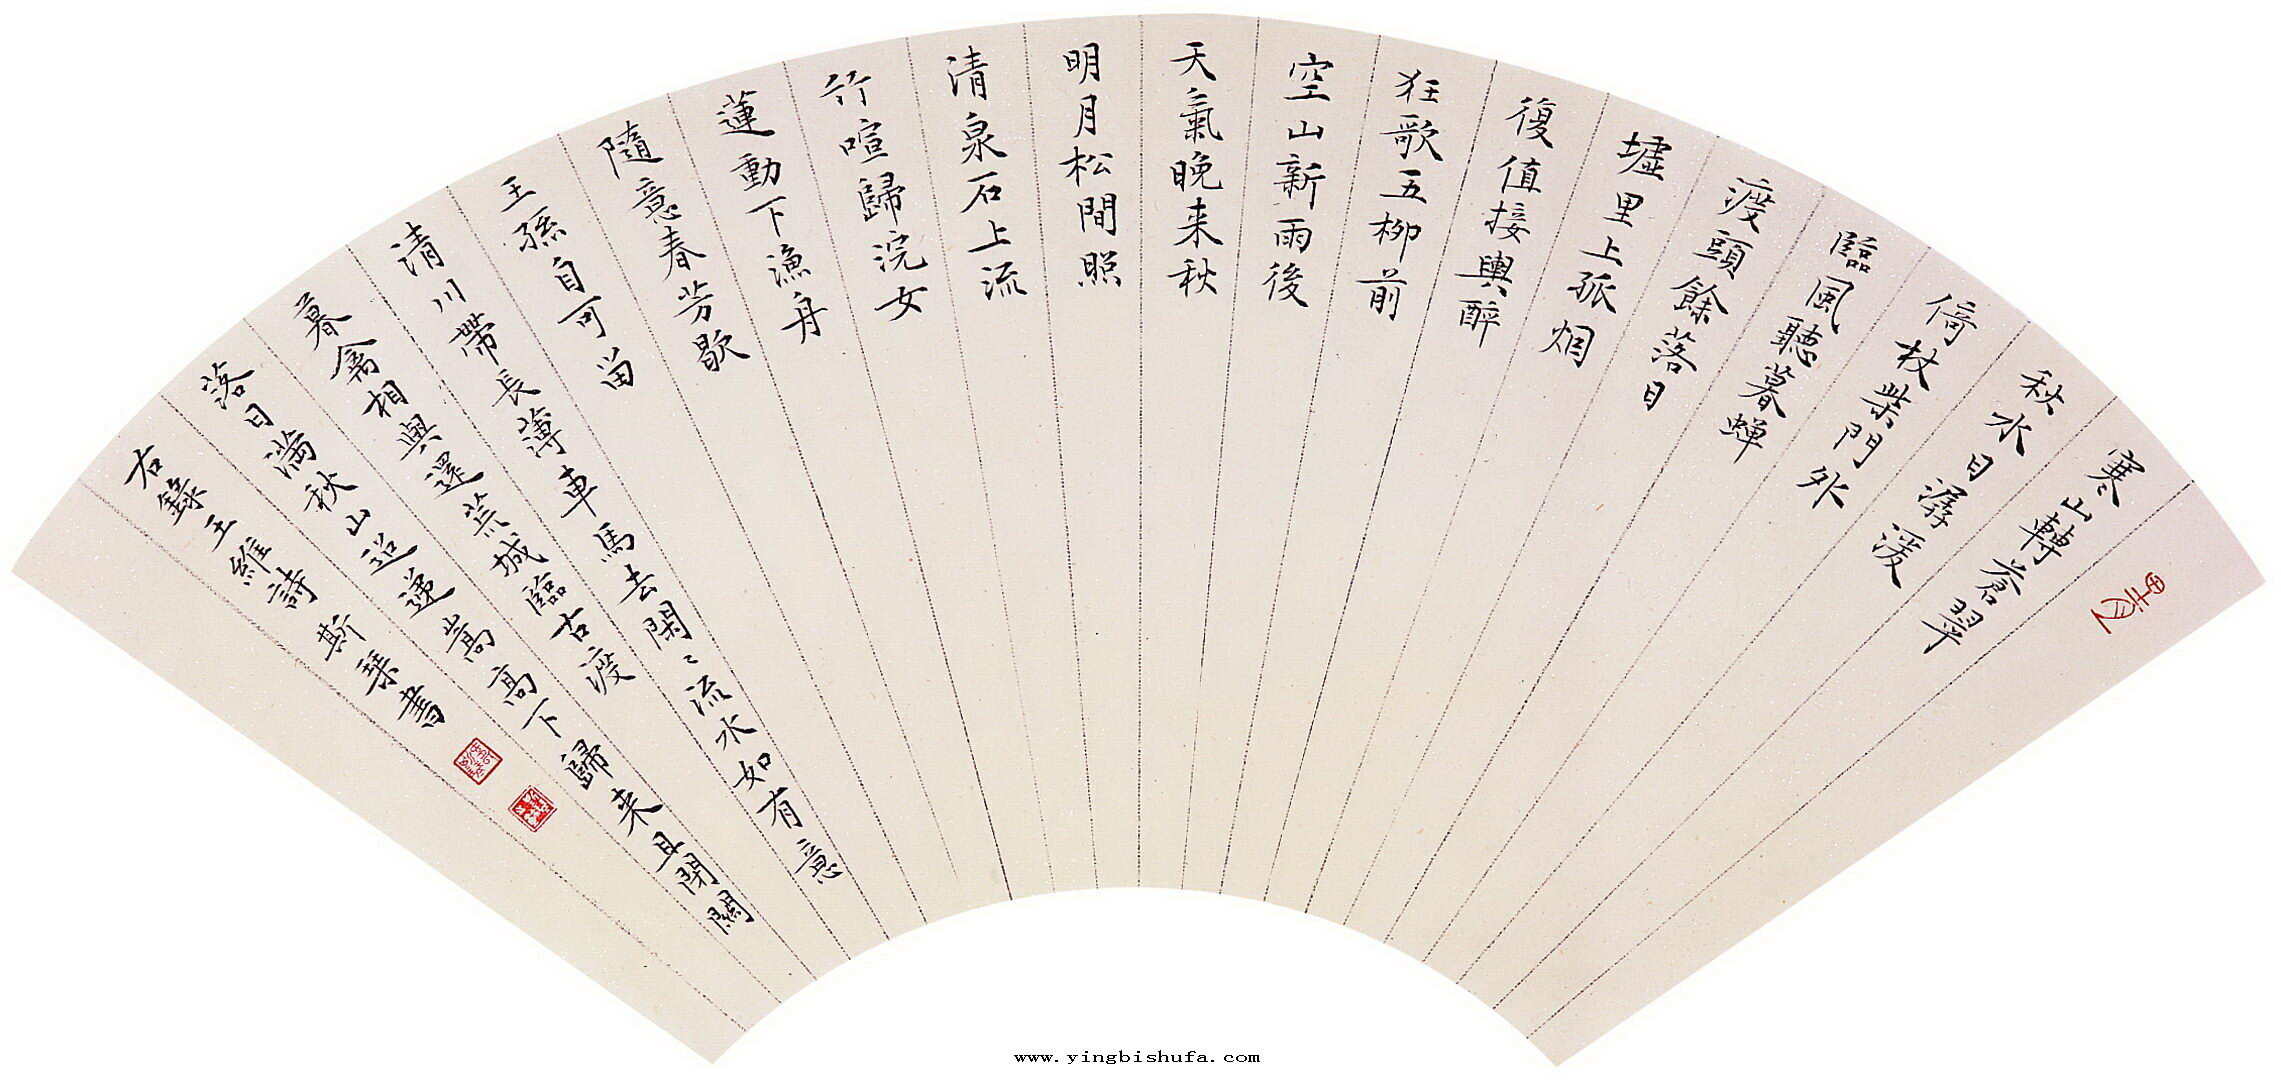 寒山轉蒼翠
秋水日潺湲
倚杖柴門外
臨風聽暮蝉
渡頭餘落日
墟里上孤烟
復值接輿醉
狂歌五柳前
空山新雨後
天氣晚来秋
明月松間照
清泉石上流
竹喧歸浣女
蓮動下漁舟
隨意春芳歇
王孫自可留
清川帶長薄車馬去閑〻流水如有意
暮禽相與還荒城臨古渡
落日滿秋山迢遞嵩高下歸来且閉關
右錄王維詩 斯琴書
www.yingbishufa.com